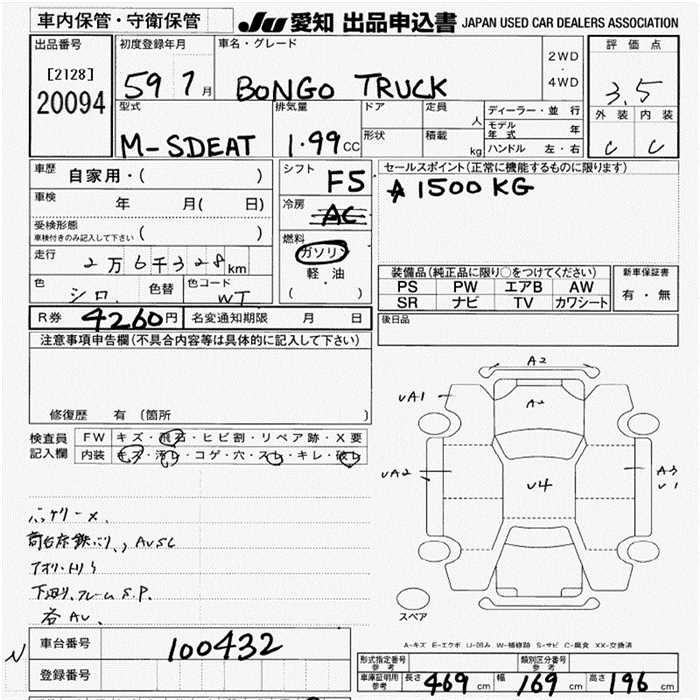 車内保管・守衛保管
JU 愛知 出品申込書 JAPAN USED CAR DEALERS ASSOCIATION
出品番号
[2128]
20094
初度登録年月
59 7月
車名・グレード
BONGO TRUCK
2WD
・
4WD
評価点
3.5
外装 内装
C C
型式
M-SDEAT
排気量
1.99CC
ドア
形状
定員
人
積載
kg
ディーラー・並行
モデル年式 年
ハンドル 左・右
車歴 自家用・( )
車検 年 月( 日)
受検形態
車検付きのみ記入して下さい ( )
走行 2万6千328km
色 シロ. 色替 色コード WT
シフト F5
冷房 AC
燃料
ガソリン
軽油
( ・ )
セールスポイント(正常に機能するものに限ります)
1500KG
装備品(純正品に限り○をつけてください)
PS PW エアB AW
SR ナビ TV カワシート
新車保証書
有・無
R券 4260円 名変通知期限 月 日
後日品
注意事項申告欄(不具合内容等は具体的に記入して下さい)
修復歴 有(箇所 )
検査員
記入欄
FW キズ・飛石・ヒビ割・リペア跡・X要
内装 キズ・汚レ・コゲ・穴・スレ・キレ・破レ
バッテリーメ.
AUSC
下回り、フレームS.P.
各AU.
A2
UA1
A2
UA2
U4
A3
U1
スペア
A-キズ E-エクボ U-凹み W-補修跡 S-サビ C-腐食 XX-交換済
N
車台番号 100432
登録番号
形式指定番号
参考
類別区分番号
参考
車庫証明用
参考
長さ 469cm 幅 169cm 高さ 196cm